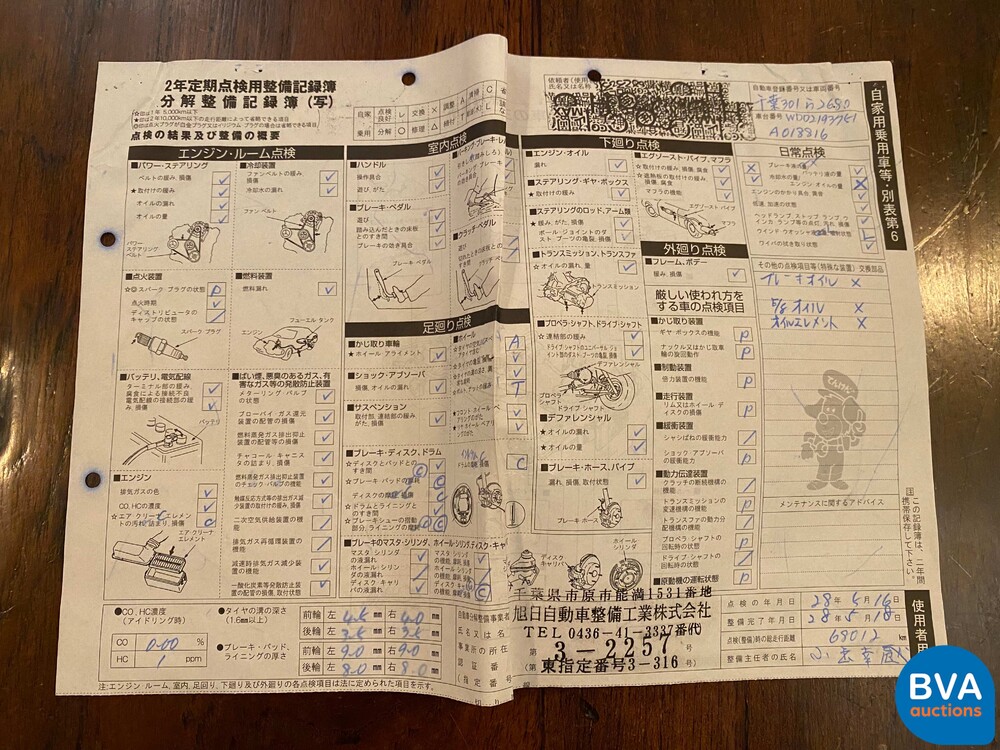 2年定期点検用整備記録簿
分解整備記録簿(写)
点検の結果及び整備の概要
自家用乗用車等・別表第6
自動車登録番号又は車両番号
車台番号 WDD2193751
A018816
エンジン・ルーム点検
■パワー・ステアリング
ベルトの緩み、損傷
★取付けの緩み
オイルの漏れ
オイルの量
パワー・ステアリング ベルト
■冷却装置
ファンベルトの緩み、損傷
冷却水の漏れ
ファン・ベルト
■点火装置
☆◎スパーク・プラグの状態 P
点火時期
ディストリビュータのキャップの状態
スパーク・プラグ
■燃料装置
燃料漏れ
エンジン
フューエル・タンク
■バッテリ、電気配線
ターミナル部の緩み、
腐食による接続不良
電気配線の接続部の緩み、損傷
バッテリ
■ばい煙、悪臭のあるガス、有害なガス等の発散防止装置
メターリング・バルブの状態
ブローバイ・ガス還元装置の配管の損傷
燃料蒸発ガス排出抑止装置の配管等の損傷
チャコール・キャニスタの詰まり、損傷
燃料蒸発ガス排出抑止装置のチェック・バルブの機能
触媒反応方式等の排出ガス減少装置の取付けの緩み、損傷
二次空気供給装置の機能
排気ガス再循環装置の機能
減速時排気ガス減少装置の機能
一酸化炭素等発散防止装置の配管の損傷、取付状態
■エンジン
排気ガスの色
CO、HCの濃度
☆エア・クリーナ・エレメントの汚れ、詰まり、損傷 C
エア・クリーナ・エレメント
室内点検
■ハンドル
操作具合
遊び、がた
■ブレーキ・ペダル
遊び
踏み込んだときの床板とのすき間
ブレーキの効き具合
ブレーキ・ペダル
足廻り点検
■かじ取り車輪
★ホイール・アライメント
■ショック・アブソーバ
損傷、オイルの漏れ
■サスペンション
取付部、連結部の緩み、がた、損傷
■ブレーキ・ディスク、ドラム
☆ディスクとパッドとのすき間
☆ブレーキ・パッドの摩耗
ディスクの摩耗、損傷
☆ドラムとライニングとのすき間
☆ブレーキシューの摺動部分、ライニングの摩耗
■ホイール
■ブレーキのマスタ・シリンダ、ホイール・シリンダ、ディスク・キャリパ
マスタ・シリンダの液漏れ
ホイール・シリンダの液漏れ
ディスク・キャリパの液漏れ
下廻り点検
■エンジン・オイル
漏れ
■ステアリング・ギヤ・ボックス
★取付けの緩み
■ステアリングのロッド、アーム類
★緩み、がた、損傷
ボール・ジョイントのダスト・ブーツの亀裂、損傷
■トランスミッション、トランスファ
☆オイルの漏れ、量
トランスミッション
■プロペラ・シャフト、ドライブ・シャフト
☆連結部の緩み
ドライブ・シャフトのユニバーサル・ジョイント部のダスト・ブーツの亀裂、損傷
デファレンシャル
プロペラ・シャフト
ドライブ・シャフト
■デファレンシャル
★オイルの漏れ
★オイルの量
■ブレーキ・ホース、パイプ
漏れ、損傷、取付状態
ブレーキ・ホース
ディスク・キャリパ
ホイール・シリンダ
■エグゾースト・パイプ、マフラ
☆取付けの緩み、損傷、腐食
☆遮熱板の取付けの緩み、損傷、腐食
マフラの機能
エグゾースト・パイプ
マフラ
外廻り点検
■フレーム、ボデー
緩み、損傷
厳しい使われ方をする車の点検項目
■かじ取り装置
ギヤ・ボックスの機能 P
ナックル又はかじ取車輪の旋回動作 P
■制動装置
倍力装置の機能 P
■走行装置
リム又はホイール・ディスクの損傷 P
■緩衝装置
シャシばねの緩衝能力
ショック・アブソーバの緩衝能力 P
■動力伝達装置
クラッチの断続機構の機能
トランスミッションの変速機構の機能 P
トランスファの動力分配機構の機能
プロペラ・シャフトの回転時の状態 P
ドライブ・シャフトの回転時の状態
■原動機の運転状態 P
日常点検
ブレーキ液の量
バッテリ液の量
冷却水の量
エンジン・オイルの量
エンジンのかかり具合、異音
低速、加速の状態
ワイパの拭き取り状態
その他の点検項目等(特殊な装置) 交換部品
ブレーキオイル ×
E/g オイル ×
オイルエレメント ×
てんけんくん
メンテナンスに関するアドバイス
注 この記録簿は、二年間携帯保存して下さい。
使用者用
●CO、HC濃度
(アイドリング時)
CO 0.00 %
HC 1 ppm
●タイヤの溝の深さ
(1.6mm以上)
●ブレーキ・パッド、ライニングの厚さ
前輪 左 mm 右 mm
後輪 左 mm 右 mm
前輪 左 9.0 mm 右 9.0 mm
後輪 左 8.0 mm 右 8.0 mm
千葉県市原市能満1531番地
旭日自動車整備工業株式会社
TEL 0436-41-3337番代
3-2257
東指定番号3-316)
点検の年月日 28年5月16日
整備完了年月日 28年5月18日
点検(整備)時の総走行距離 68012 km
整備主任者の氏名
注:エンジン・ルーム、室内、足回り、下廻り及び外廻りの各点検項目は法に定められた項目を示す。
BVA
auctions